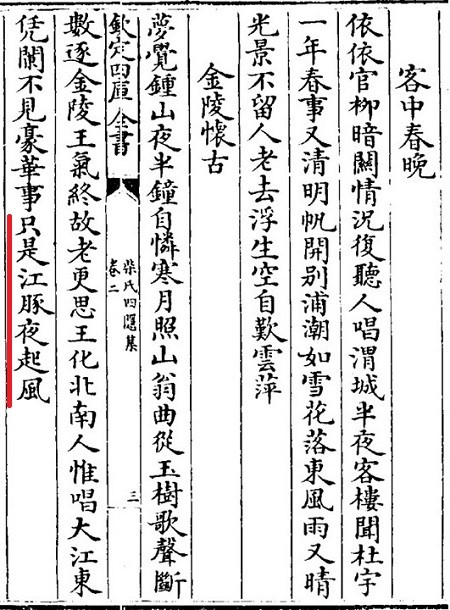 客中春晚
依依官柳暗關情況復聽人唱渭城半夜客樓聞杜宇
一年春事又清明帆開别浦潮如雪花落東風雨又晴
光景不留人老去浮生空自歎雲萍
金陵懷古
夢覺鍾山夜半鐘自憐寒月照山翁曲從玉樹歌聲斷
欽定四庫全書
柴氏四隱集
卷二
三
數逐金陵王氣終故老更思王化北南人惟唱大江東
凭闌不見豪華事只是江豚夜起風